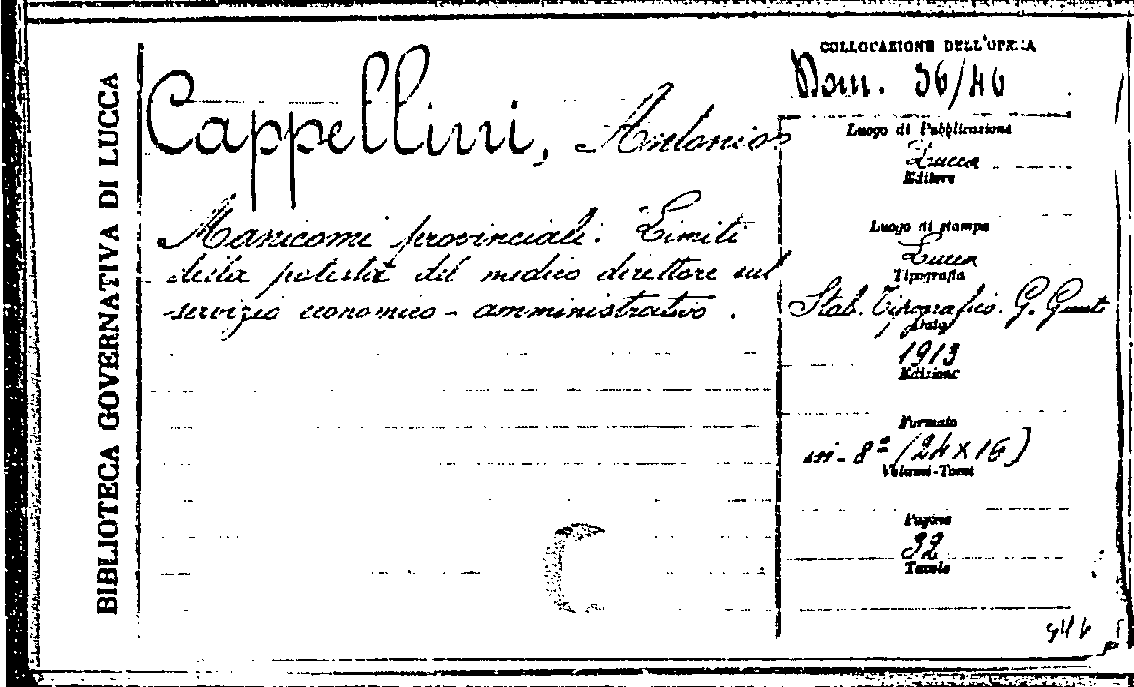 BIBLIOTECA GOVERNATIVA DI LUCCA
Cappellini, Antonio
Manicomi provinciali. Limiti
della potestà del medico direttore sul
servizio economico-amministrativo.
COLLOCAZIONE DELL'OPERA
36/46
Luogo di Pubblicazione
Lucca
Editore
Luogo di stampa
Lucca
Tipografia
Stab. Tipografico. G. Giusti
Data
1913
Edizione
Formato
in-8º (24x16)
Volumi-Tomi
Pagine
32
Tavole